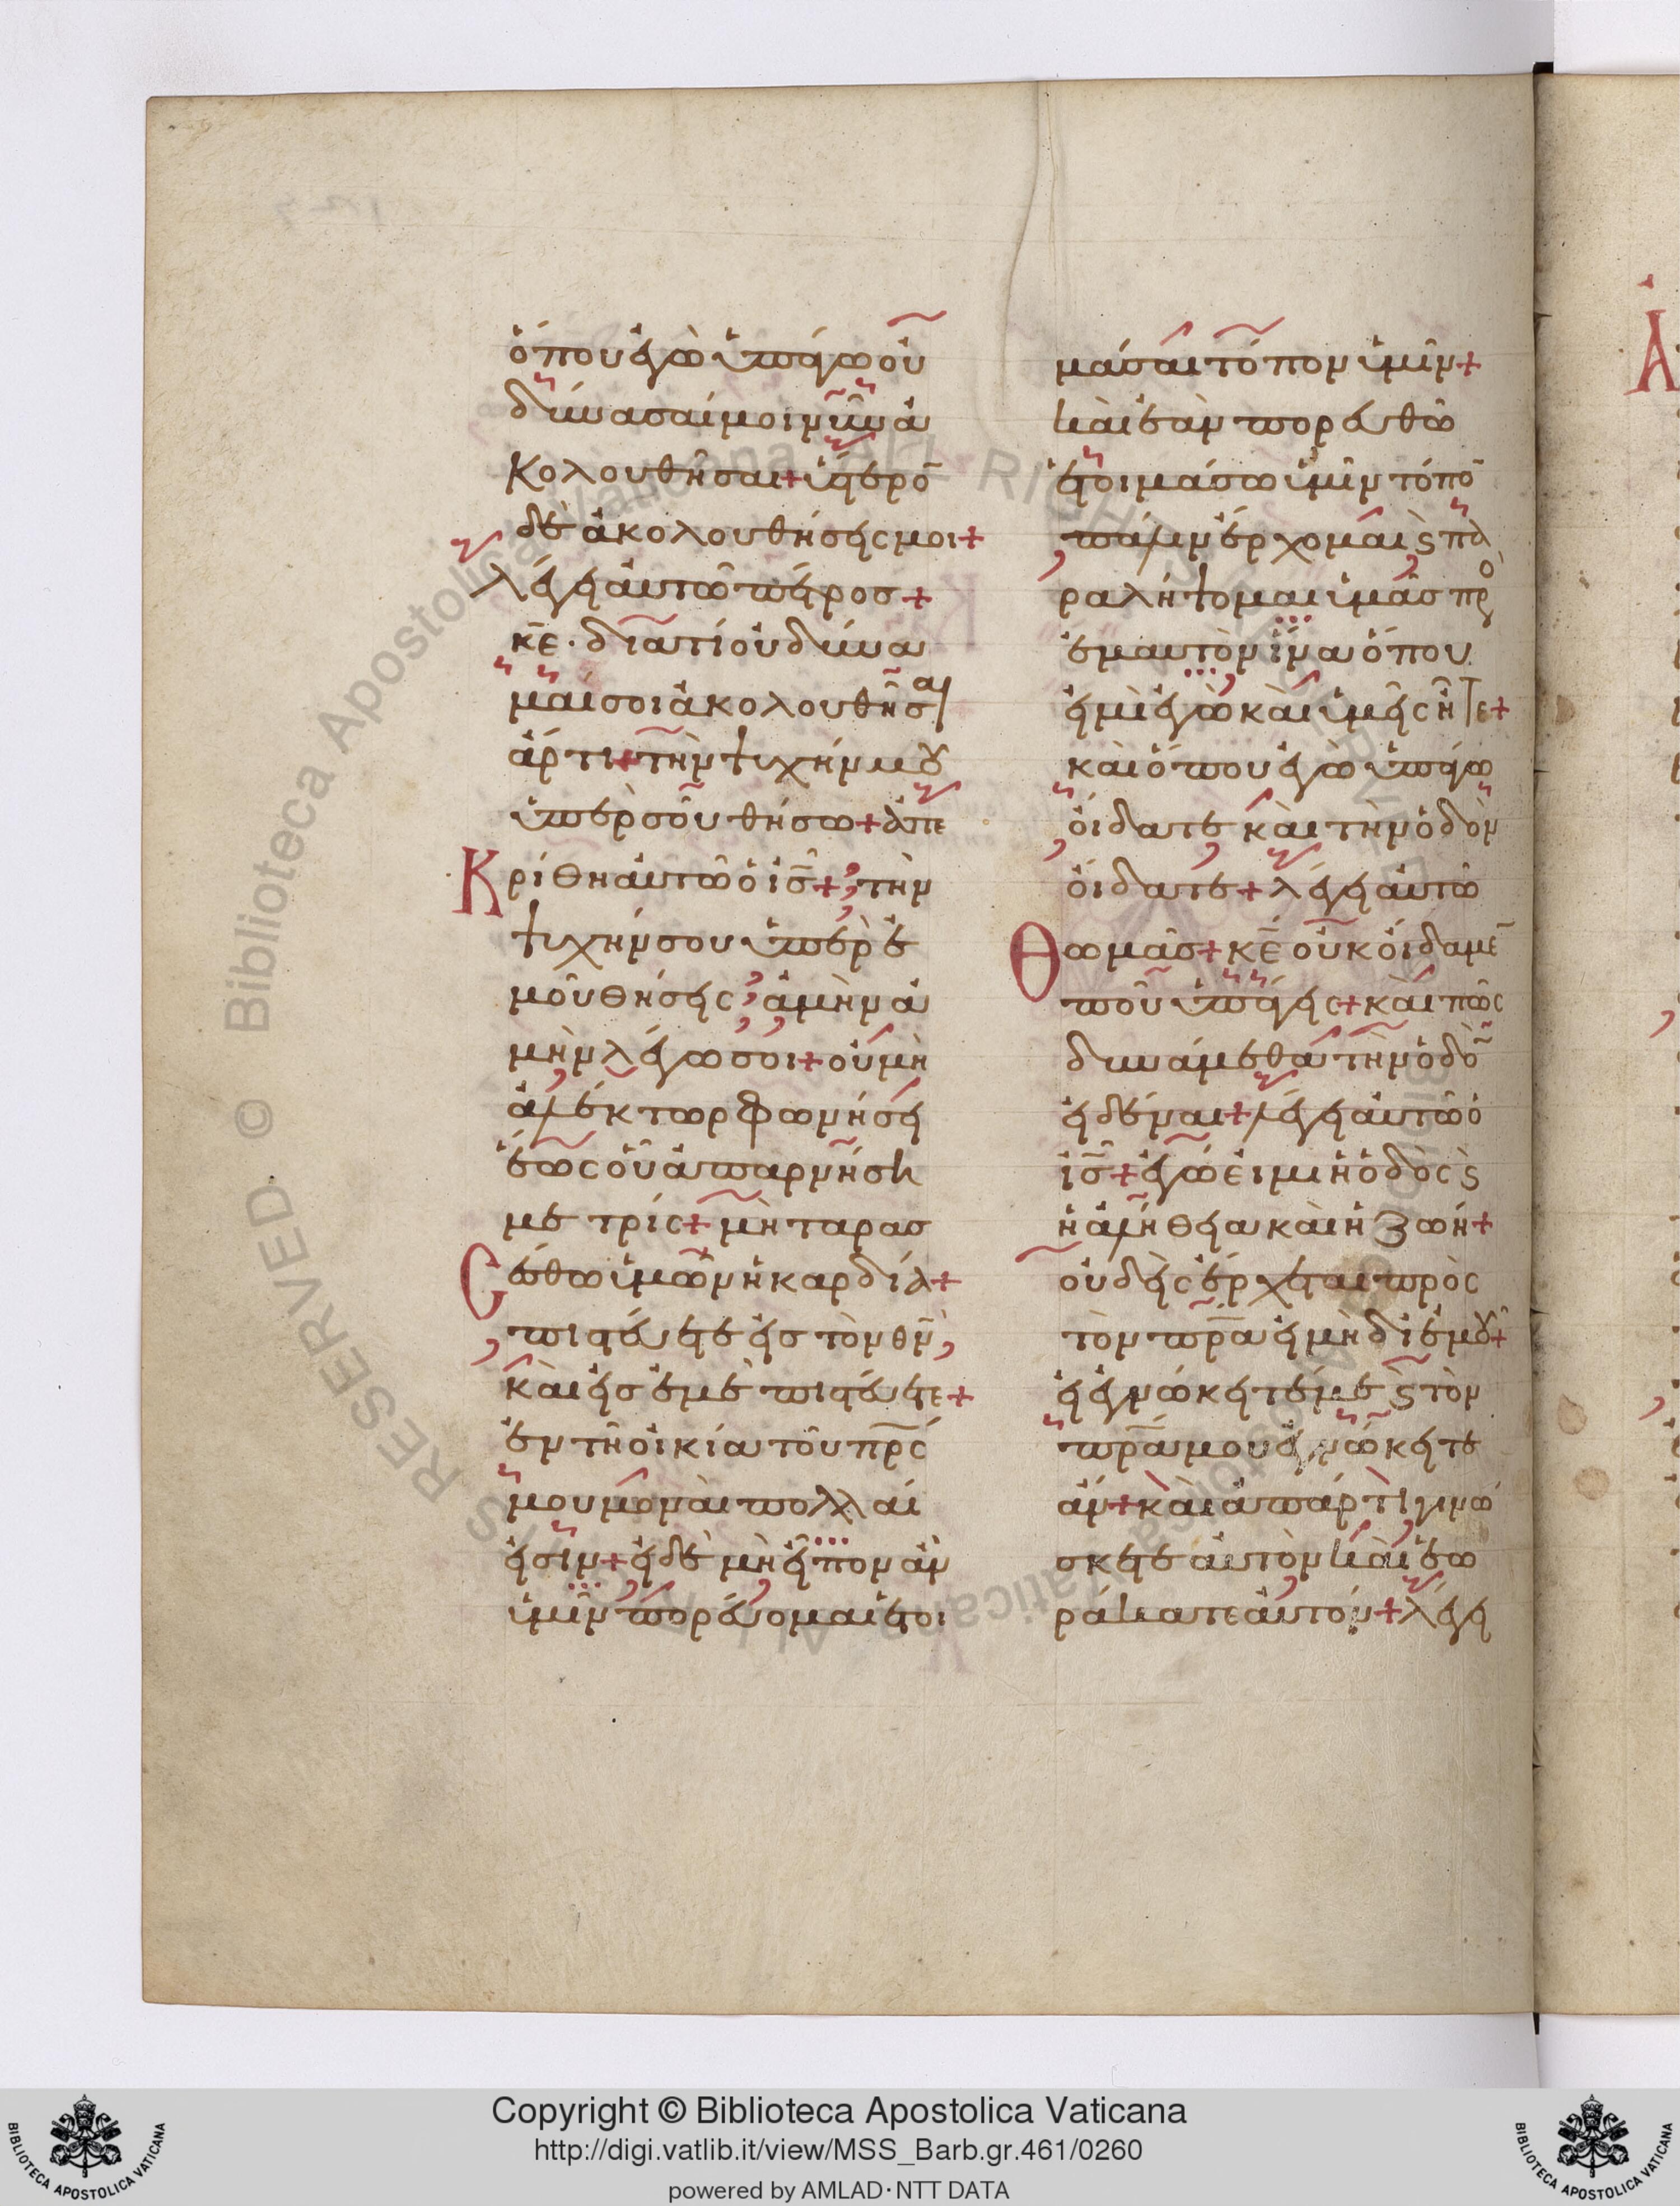 ὅπου ἐγὼ ὑπάγω οὐ
δύνασαί μοι νῦν ἀ
κολουθῆσαι + ὕστερο̄
δὲ ἀκολουθήσεις μοι +
λέγει αὐτῶ πέτροσ +
κ̄ε · διατί οὐ δύνα
μαί σοι ἀκολουθῆσαι
ἄρτι + τὴν ψυχήν μου
ὑπὲρ σοῦ θήσω + ἀπε
Κρίθη αὐτῶ ὁ ἰ̄ς + τὴν
ψυχήν σου ὑπὲρ ἐ
μοῦ θήσεις ἀμὴν ἀ
μὴν λέγω σοι + οὐ μὴ
ἀλέκτωρ φωνήσει
ἕως οὗ ἀπαρνήση
με τρίς + μὴ ταρασ
Σέσθω ὑμῶν ἡ καρδία +
πιστεύετε εἰσ τὸν θ̄ν
καὶ εἰσ ἐμὲ πιστεύετε +
ἐν τῆ οἰκία τοῦ π̄ρς
μου μοναὶ πολλαί
εἰσιν + εἰ δὲ μὴ εἶπον ἂν
ὑμῖν πορεύομαι ἑτοι
μάσαι τόπον ὑμῖν +
καὶ ἐὰν πορευθῶ
ἑτοιμάσω ὑμῖν τόπο̄
πάλιν ἔρχομαι ϗ πα
ραλήψομαι ὑμᾶσ πρὸ
ἐμαυτὸν ἵνα ὅπου
εἰμὶ ἐγὼ καὶ ὑμεῖς ἦτε +
καὶ ὅπου ἐγὼ ὑπάγω
οἴδατε καὶ τὴν ὁδὸν
οἴδατε + λέγει αὐτῶ
Θωμᾶσ + κ̄ε οὐκ οἴδαμε̄
ποῦ ὑπάγεις + καὶ πῶς
δυνάμεθα τὴν ὁδὸ̄
εἰδέναι + λέγει αὐτῶ ὁ
ἰ̄ς + ἐγώ εἰμι ἡ ὁδὸς ϗ
ἡ ἀλήθεια καὶ ἡ ζωή +
οὐδεὶς ἔρχεται πρὸς
τὸν π̄ρα εἰ μὴ δι ἐμοῦ +
εἰ ἐγνώκειτέ με ϗ τὸν
π̄ρα μου ἐγνώκειτε
ἄν + καὶ ἀπάρτι γινώ
σκετε αὐτὸν καὶ ἑω
ράκατε αὐτόν + λέγει
Copyright © Biblioteca Apostolica Vaticana
http://digi.vatlib.it/view/MSS_Barb.gr.461/0260
powered by AMLAD·NTT DATA